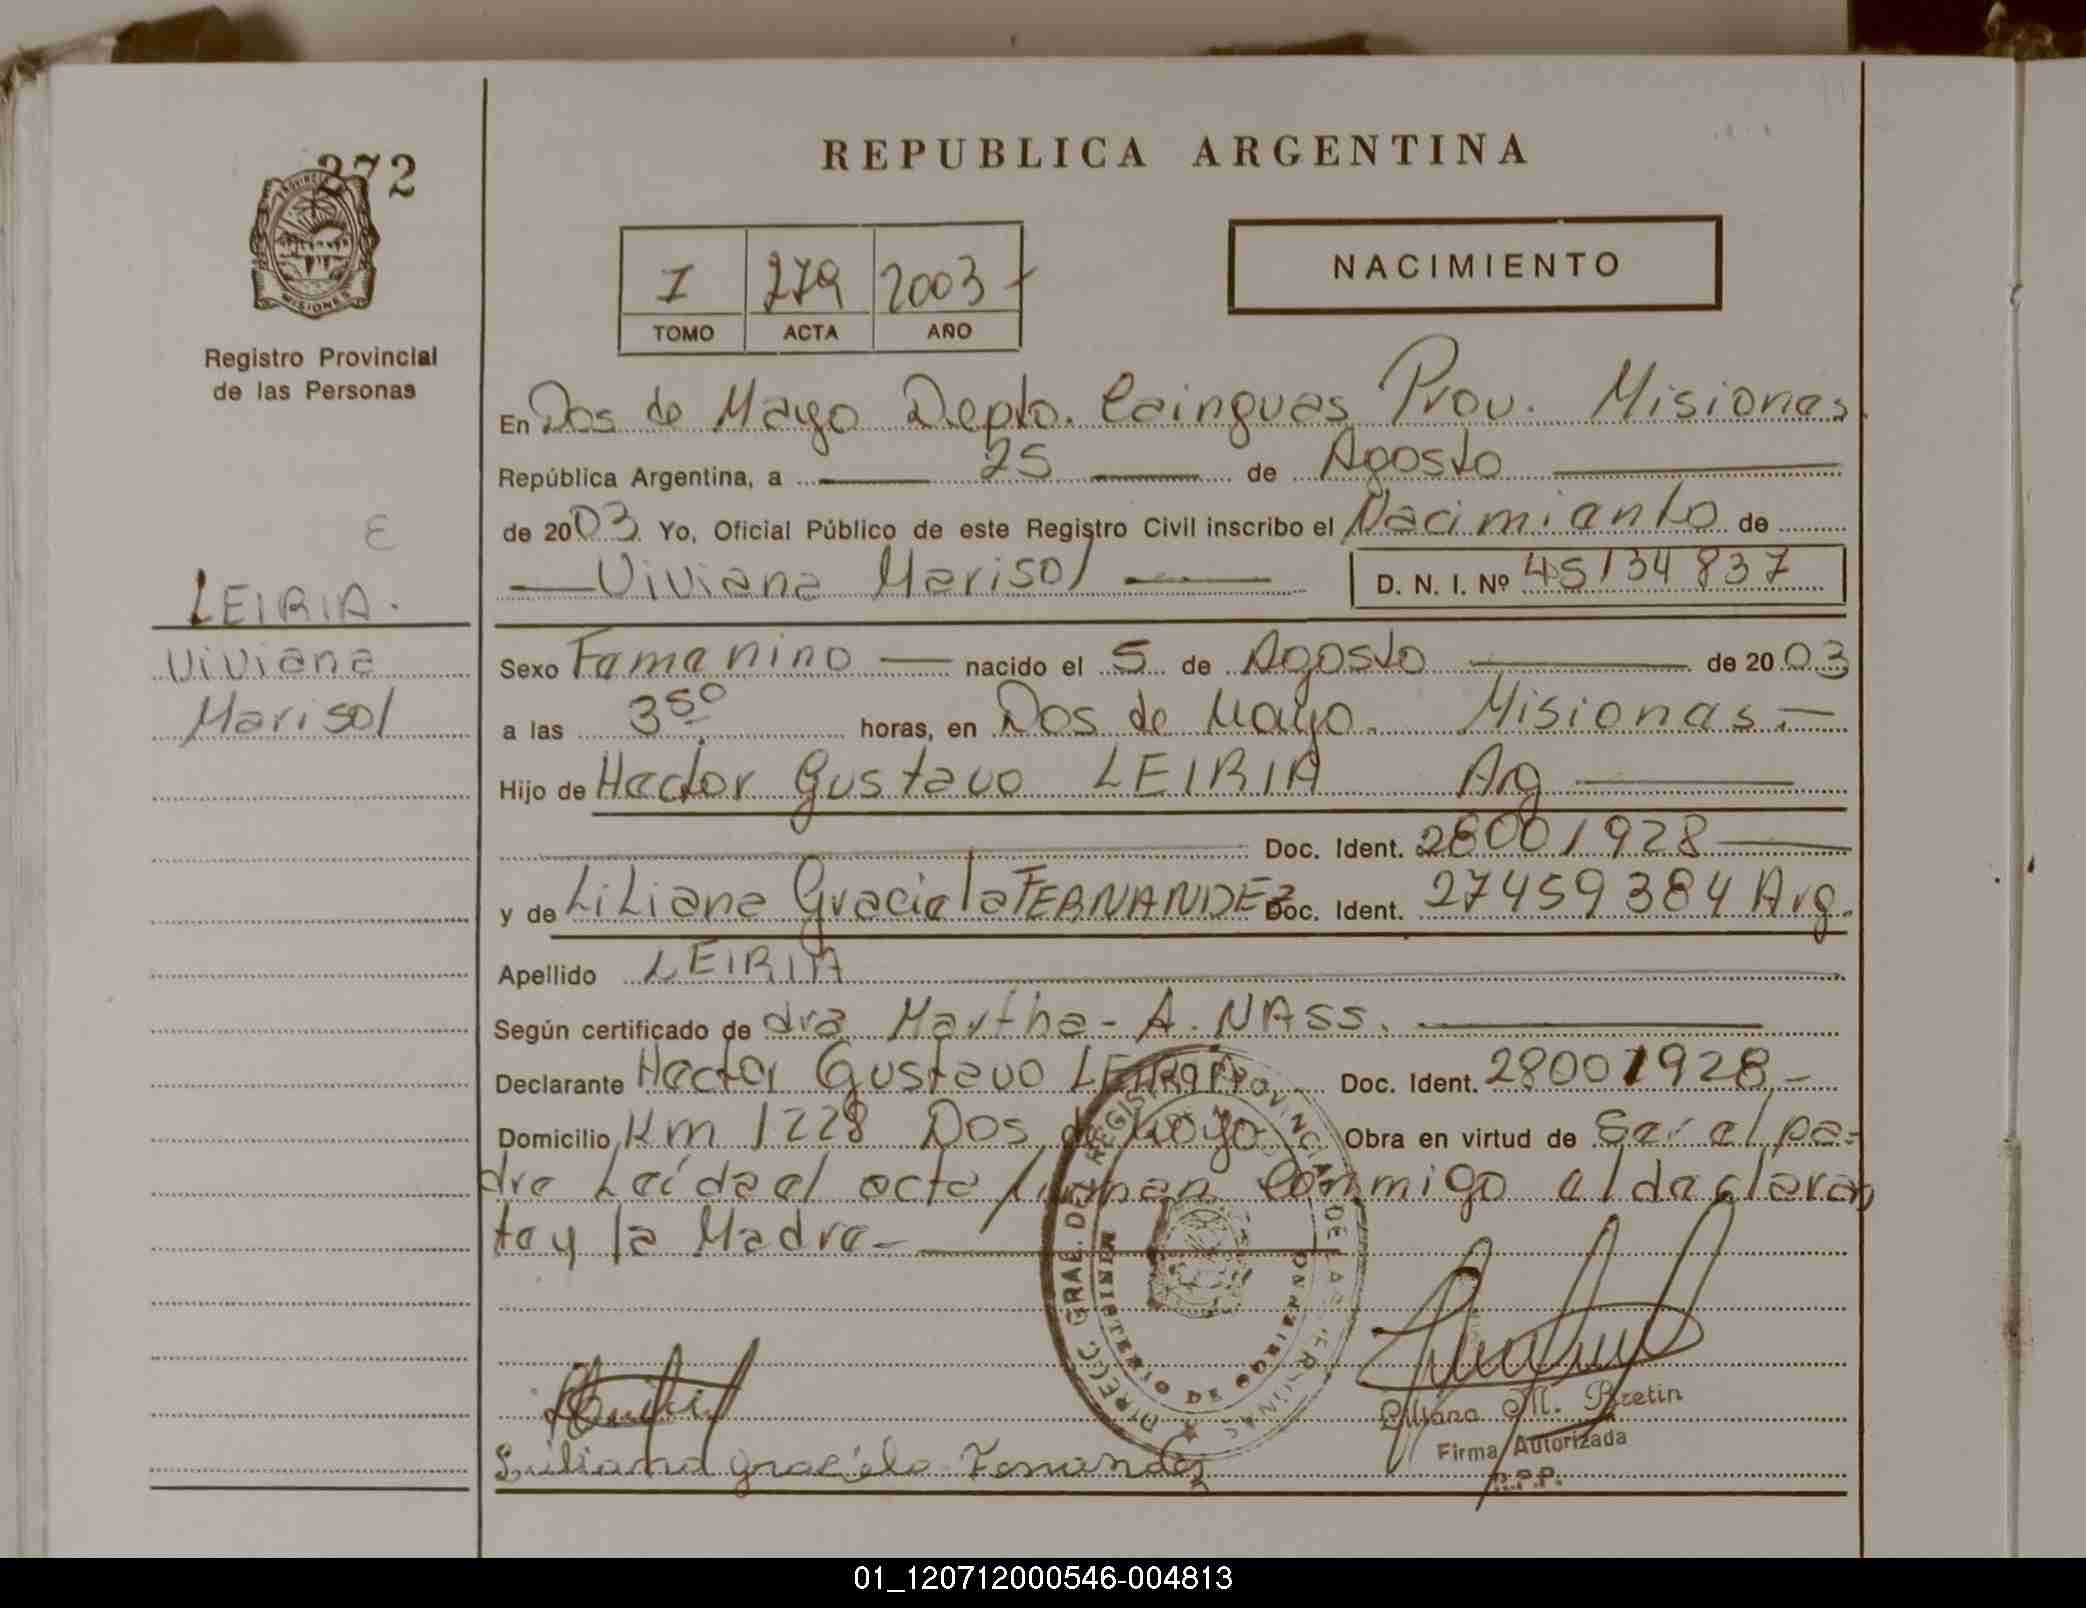 272
REPUBLICA ARGENTINA
PROVINCIA
MISIONES
Registro Provincial
de las Personas
I 279 2003
TOMO ACTA AÑO
NACIMIENTO
En Dos de Mayo Depto. Cainguas Prov. Misiones.
República Argentina, a 25 de Agosto
de 2003 Yo, Oficial Público de este Registro Civil inscribo el Nacimiento de
Viviana Marisol D. N. I. Nº 45134837
E
LEIRIA.
Viviana
Marisol
Sexo Femenino nacido el 5 de Agosto de 2003
a las 3⁵⁰ horas, en Dos de Mayo. Misiones.
Hijo de Hector Gustavo LEIRIA Arg
Doc. Ident. 28001928
y de LiLiana Graciela FERNANDEZ Doc. Ident. 27459384 Arg.
Apellido LEIRIA
Según certificado de dra Martha - A. NASS.
Declarante Hector Gustavo LEIRIA Doc. Ident. 28001928 -
Domicilio Km 1228 Dos de Mayo Obra en virtud de Ser el pa-
dre Leída el acta firman conmigo el declaran
te y la Madre -
DIRECC. GRAL. DEL REGISTRO PROVINCIAL DE LAS PERSONAS
MINISTERIO DE GOBIERNO
Liliana graciela Fernandez
Liliana M. Bretin
Firma Autorizada
R.P.P.
01_120712000546-004813